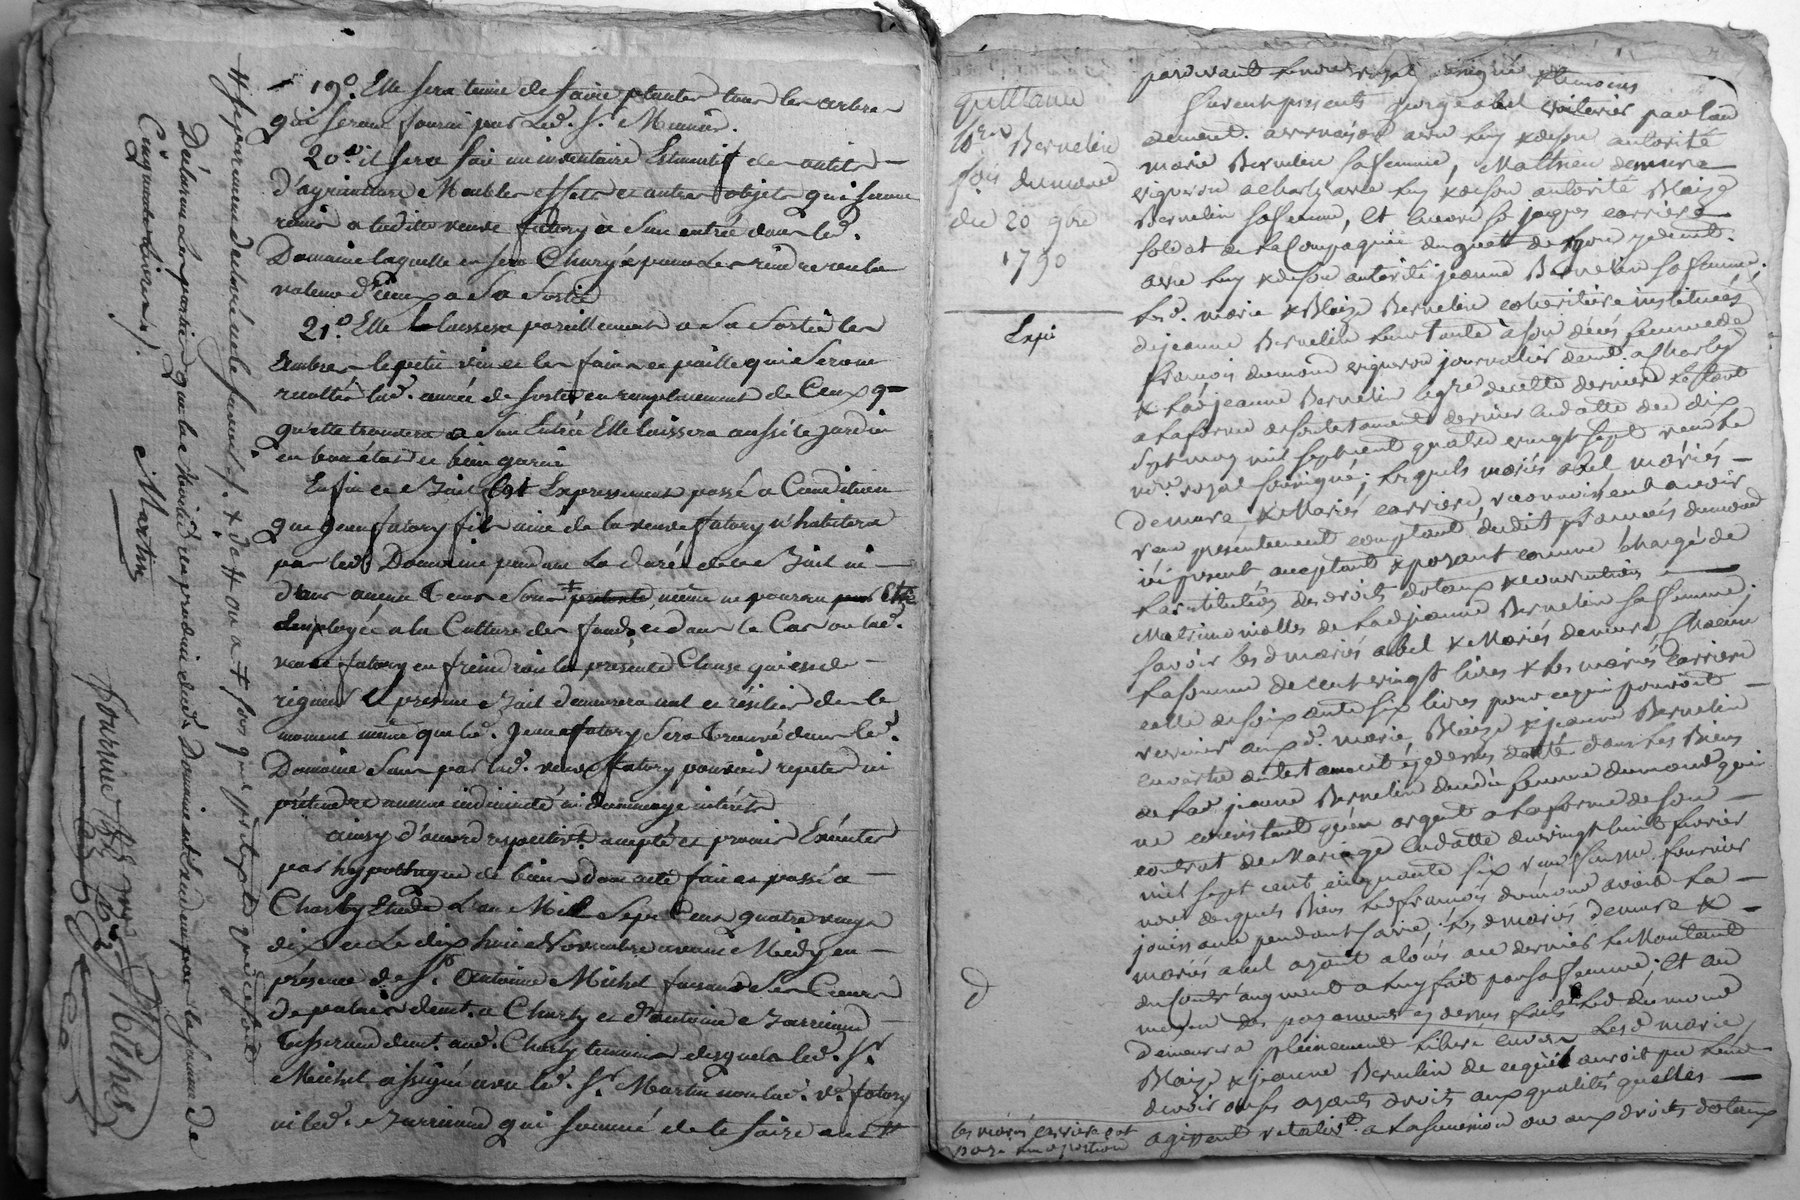 19.° Elle sera tenue de faire planter tous les arbres
qui seront fourni par led. S.r Meunier.
20.° il sera fait un inventaire Estimatif des outils
D'agriculture Meubles effets et autres objets qui seront
remis a ladite veuve fatory a Son entrée dans led.
Domaine laquelle en sera Chargée pour les rendre ou la
valeur d'iceux a Sa Sortie
21.° Elle laissera pareillement a Sa Sortie les
le petit vin et les foins et paille qui Seront
recoltés lad. année de Sortie en remplacement de Ceux q
qu'elle trouvera a Son Entrée Elle laissera aussi le Jardin
en bon état et bien garni
Enfin ce Bail Est Expressement passé a Condition
que Jean fatory fils ainé de la veuve fatory n'habitera
pas led. Domaine pendant La durée de ce Bail ni
dans aucun tems Sous pretexte, même ne pourra pas Etre
Employé a la Culture des fonds, et dans le Cas ou lad.
veuve fatory enfreindroit la presente Clause qui est de
rigueur Le present Bail demeurera nul et résilié dès le
moment même que led. Jean fatory Sera trouvé dans led.
Domaine Sans par lad. veuve fatory pouvoir repeter ni
prétendre aucune indemnité ni dommage intérêts
ainsy d'accord respectivt. accepté et promis Exécuter
par hypothèque de biens dont acte fait et passé a
Charly Etude L'an Mil Sept Cent quatre vingt
dix et Le dix huit Novembre avant Midy en
présence de S.r Antoine Michel faisant Ses Cours
de pratique demt. a Charly et d'Antoine Jarricand
Tisserand demt. aud. Charly temoins desquels led. S.r
Michel a signé avec led. S.r Martin non lad. v.e fatory
ni led. Jarricand qui sommé de le faire ont
# le premier declaré ne le savoir ./. + de # ou a + sous quel pretexte que ce soit
Déclarent Les parties que la moitié du produit dud. Domaine est de la somme de
Cinquante Livres ./.
Martin
fournier
Michel
quittance
Bernelin
dumond
du 20 9bre
1790
Expé
pardevant Le no.re royal soussigné & temoins
furent presents george abel voiturier par eau
demeurt. a vernaison avec luy & de son autorité
marie Bernelin sa femme, Mathieu demure
vigneron a charly avec luy & de son autorité Blaize
Bernelin sa femme, Et encore s.r jacques carriere
soldat de La Compagnie du guet de lyon y demt.
avec luy & de son autorité jeanne Bernelin sa femme
Lesd. marie & Blaize Bernelin coheritiere instituées
de jeanne Bernelin leur tante à son décés femme de
francois dumond vigneron journalier demt. a Charly
& Lad. jeanne Bernelin legre. de cette derniere Le tout
a La forme de son testament dernier en datte du dix
sept may mil sept cent quatre vingt sept reçu Le
no.re royal soussigné; Lesquels mariés abel mariés
demure & Mariés carriere, reconnoissent avoir
reçu présentement comptant dudit francois dumond
ici present acceptant & payant comme chargé de
la restitution des droits dotaux & conventions
Matrimonialles de Lad. jeanne Bernelin sa femme;
savoir les d. mariés abel & Mariés demure Chacun
La somme de cent vingt livres & les mariés Carriere
celle de soixante six livres pour ce qui pouvoit
revenir aux d. marie, Blaize & jeanne Bernelin
en vertu du testament cy dessus datté dans les Biens
de Lad. jeanne Bernelin femme dumond qui
ne consistant qu'en argent a La forme de son
contrat de Mariage en datte du vingt huit fevrier
mil sept cent cinquante six reçu fournier
no.re desquels Biens Led. francois dumond avoit La
jouissance pendant sa vie; les d. mariés demure &
mariés abel ayant aloués au dernier Le Montant
du sout d'augment a luy fait par sa femme; Et au
moyen des payements cy dessus faits Led. dumond
demeurera pleinement Liberé envers Lesd. marie
Blaize & jeanne Bernelin de ce qu'il auroit pu leur
devoir ou ses ayants droits aux qualités quelles
agissent relativt. a La succession ou aux droits dotaux
les mariés carriere ont